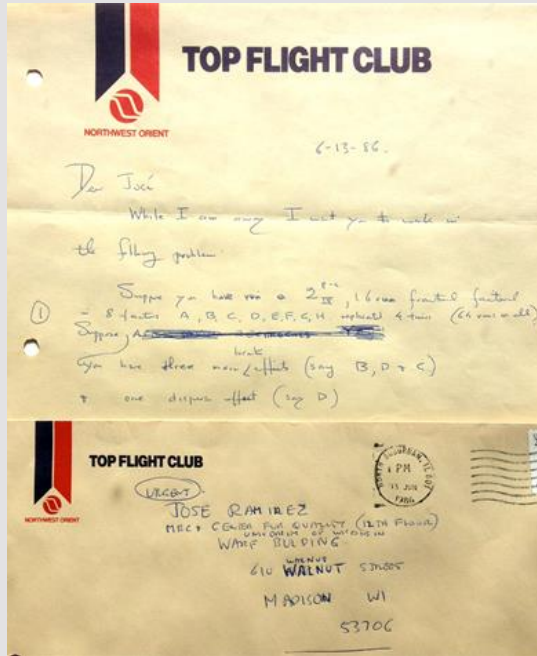 TOP FLIGHT CLUB
NORTHWEST ORIENT
6-13-86.
Dear José
While I am away I want you to work on
the problem.
Suppose you have run a 2 8-4 IV, 16 run factorial
① in 8 factors A, B, C, D, E, F, G, H replicated 4 times (64 runs in all)
Suppose
you have three main location effects (say B, D + C)
+ one dispersion effect (say D)
TOP FLIGHT CLUB
NORTHWEST ORIENT
URGENT
JOSE RAMIREZ
CENTER FOR QUALITY (12TH FLOOR)
UNIVERSITY OF WISCONSIN
WARF BUILDING
WALNUT
610 WALNUT STREET
MADISON WI
53706
PM
1986